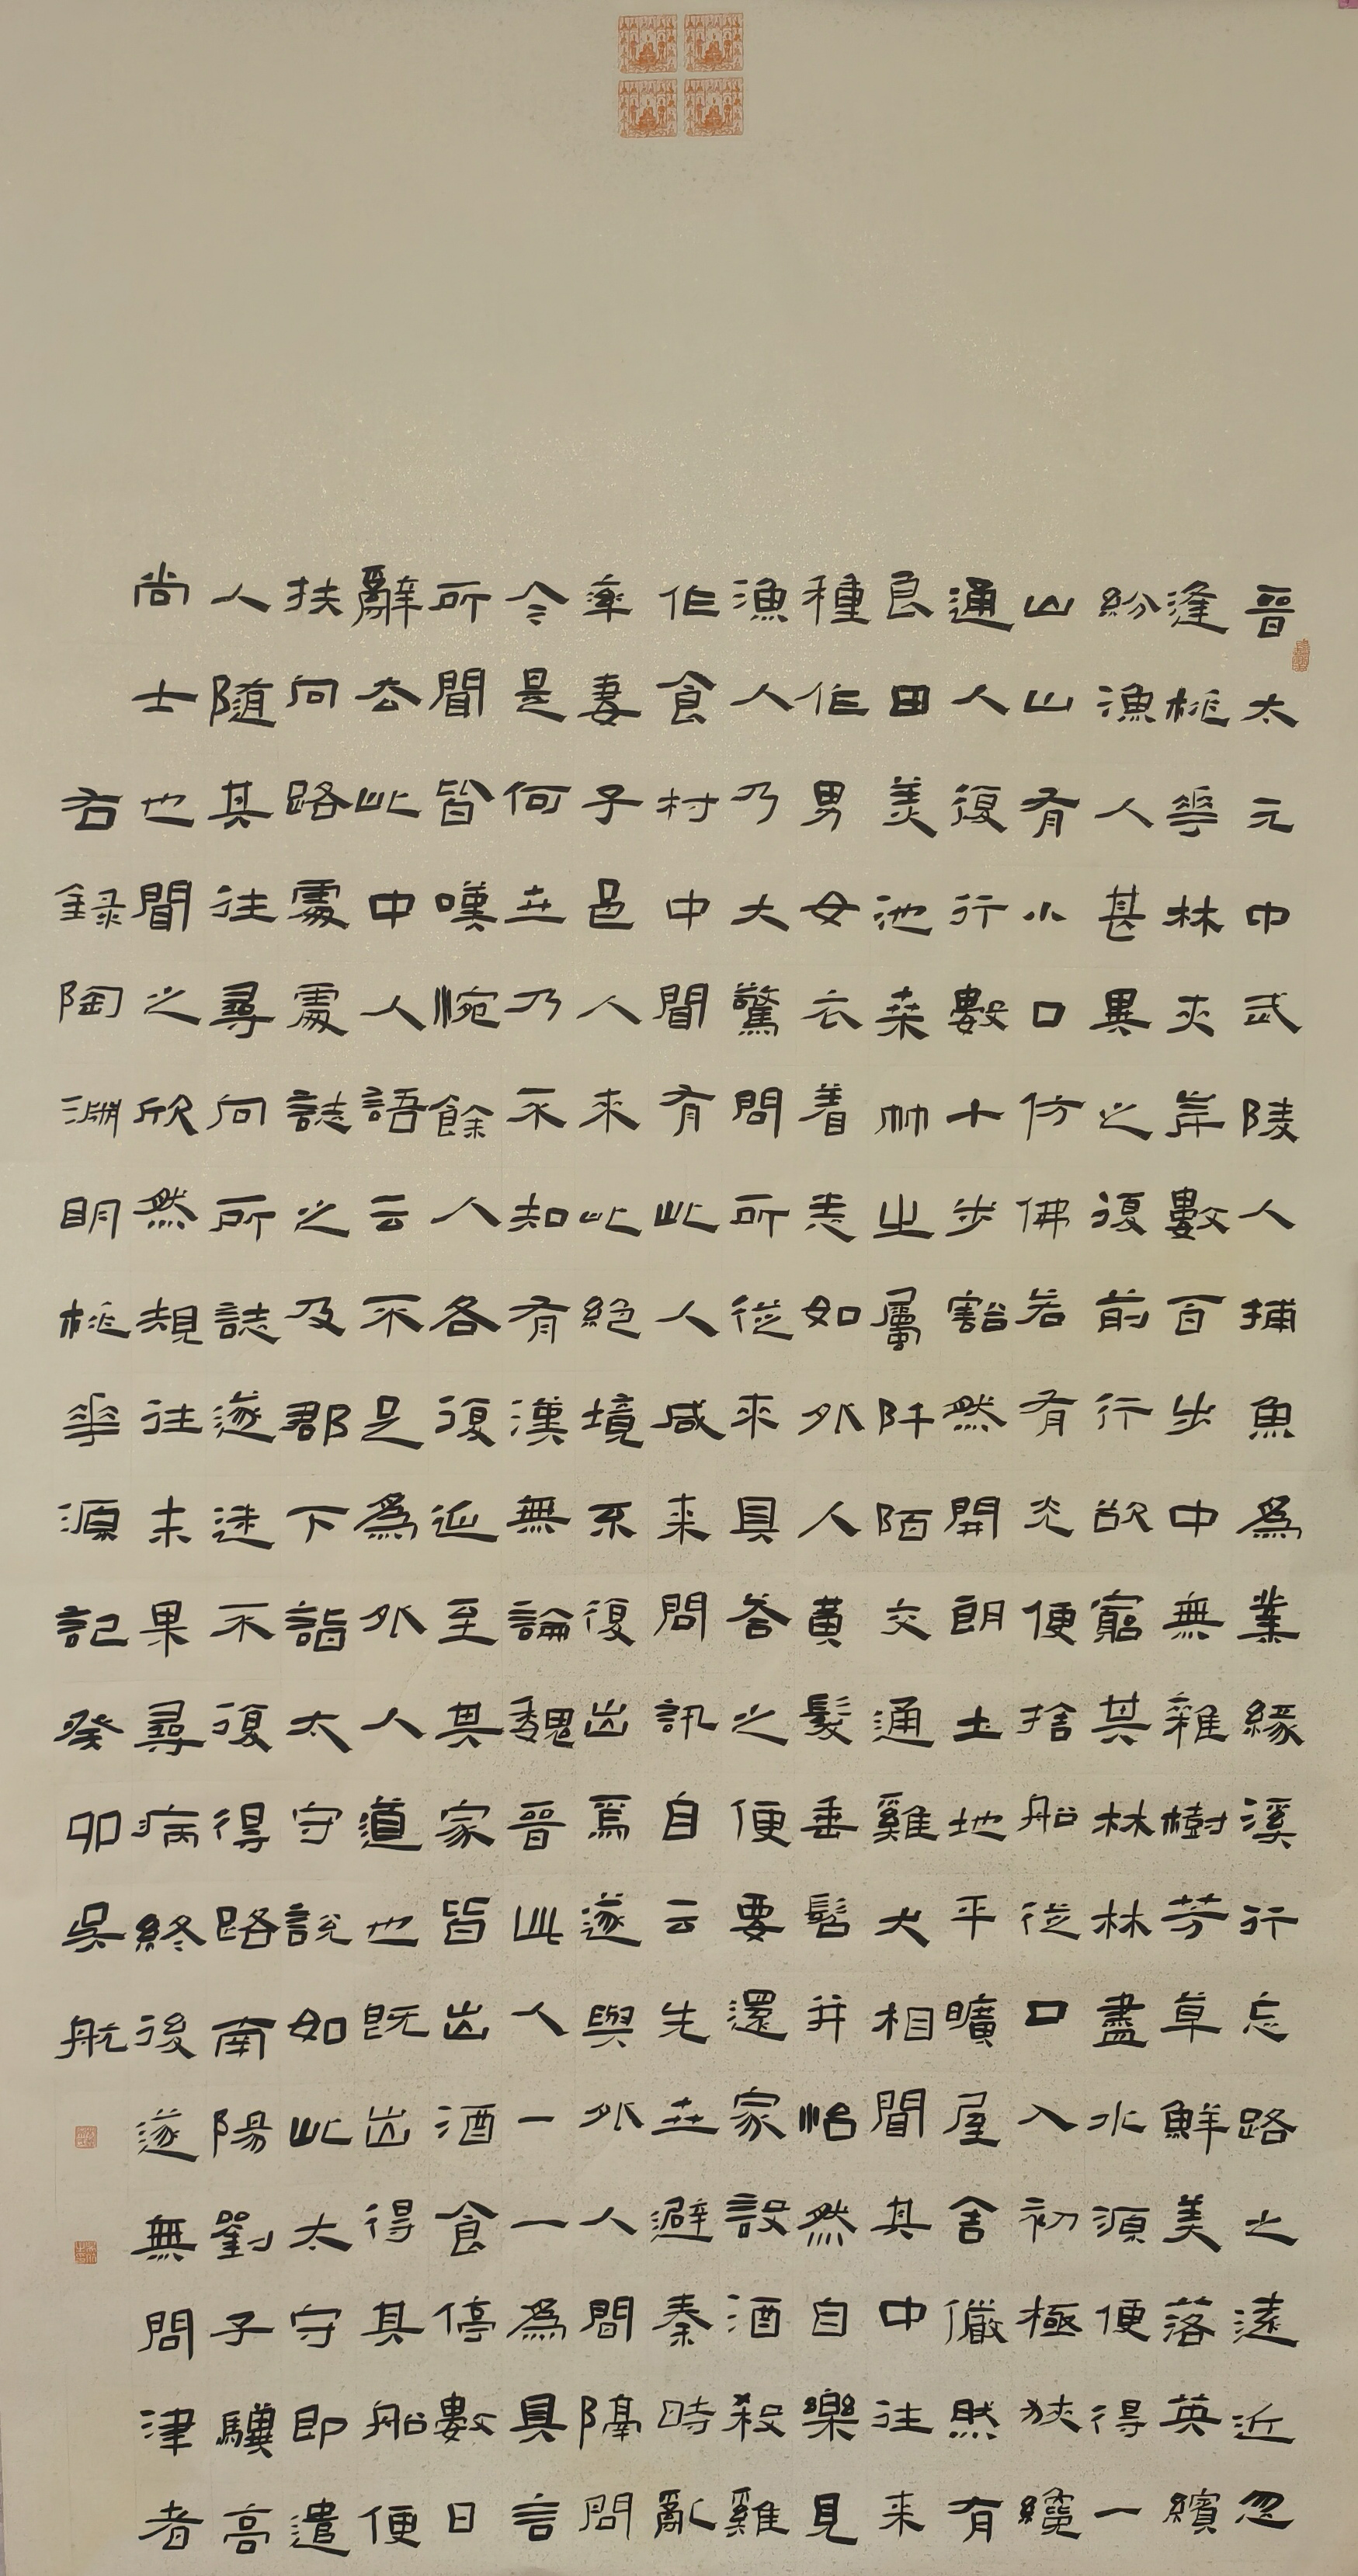 晉太元中武陵人捕魚爲業緣溪行忘路之遠近忽
逢桃華林夾岸數百步中無雜樹芳草鮮美落英繽
紛漁人甚異之復前行欲窮其林林盡水源便得一
山山有小口仿佛若有光便捨船從口入初極狹纔
通人復行數十步豁然開朗土地平曠屋舍儼然有
良田美池桑竹之屬阡陌交通雞犬相聞其中往来
種作男女衣着悉如外人黃髮垂髫并怡然自樂見
漁人乃大驚問所從來具答之便要還家設酒殺雞
作食村中聞有此人咸来問訊自云先世避秦時亂
率妻子邑人來此絕境不復出焉遂與外人間隔問
今是何世乃不知有漢無論魏晉此人一一爲具言
所聞皆嘆惋餘人各復延至其家皆出酒食停數日
辭去此中人語云不足爲外人道也既出得其船便
扶向路處處誌之及郡下詣太守說如此太守即遣
人隨其往尋向所誌遂迷不復得路南陽劉子驥高
尚士也聞之欣然規往未果尋病終後遂無問津者
右録陶淵明桃華源記癸卯吳航